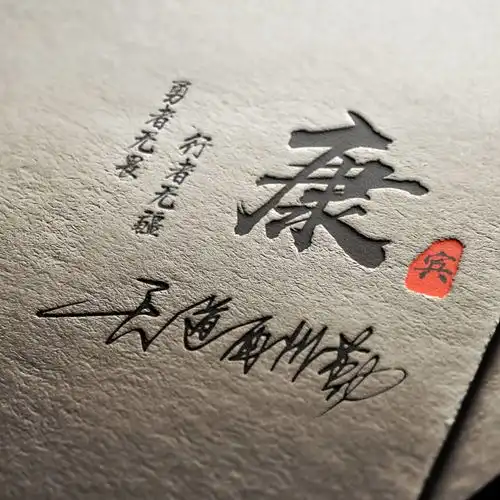 康
宾
行者无疆
勇者无畏
天道酬勤